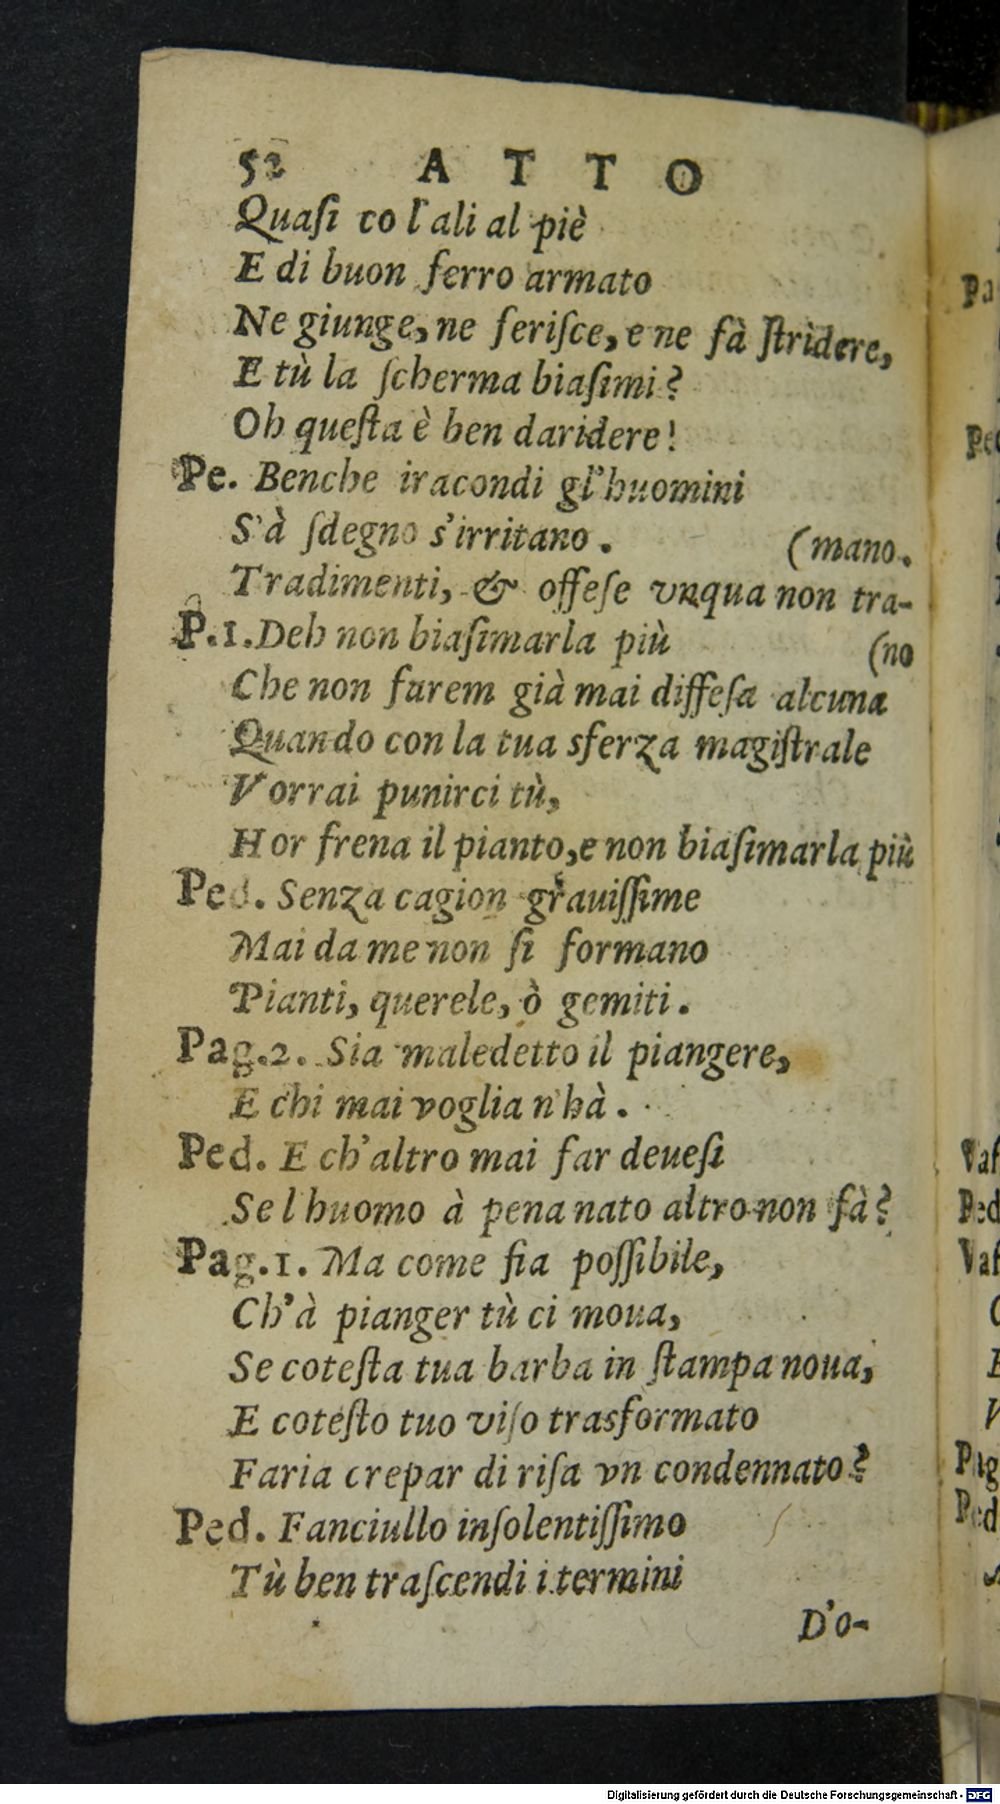 52 ATTO
Quaſi co l'ali al piè
E di buon ferro armato
Ne giunge, ne feriſce, e ne fà ſtrìdere,
E tù la ſcherma biaſimi?
Oh queſta è ben daridere!
Pe. Benche iracondi gl'huomini
S'à ſdegno s'irritano. (mano.
Tradimenti, & offeſe vnqua non tra-
P.1. Deh non biaſimarla più (no
Che non furem già mai diffeſa alcuna
Quando con la tua sferza magiſtrale
Vorrai punirci tù,
Hor frena il pianto, e non biaſimarla più
Ped. Senza cagion grauiſſime
Mai da me non ſi formano
Pianti, querele, ò gemiti.
Pag.2. Sia maledetto il piangere,
E chi mai voglia n'hà.
Ped. E ch'altro mai far deueſi
Se l'huomo à pena nato altro non fà?
Pag.1. Ma come fia poſſibile,
Ch'à pianger tù ci moua,
Se coteſta tua barba in ſtampa noua,
E coteſto tuo viſo trasformato
Faria crepar di riſa vn condennato?
Ped. Fanciullo inſolentiſſimo
Tù ben traſcendi i termini
D'o-
Pa
Ped
Vaf
Ped
Vaf
Pag
Ped
Digitalisierung gefördert durch die Deutsche Forschungsgemeinschaft - DFG